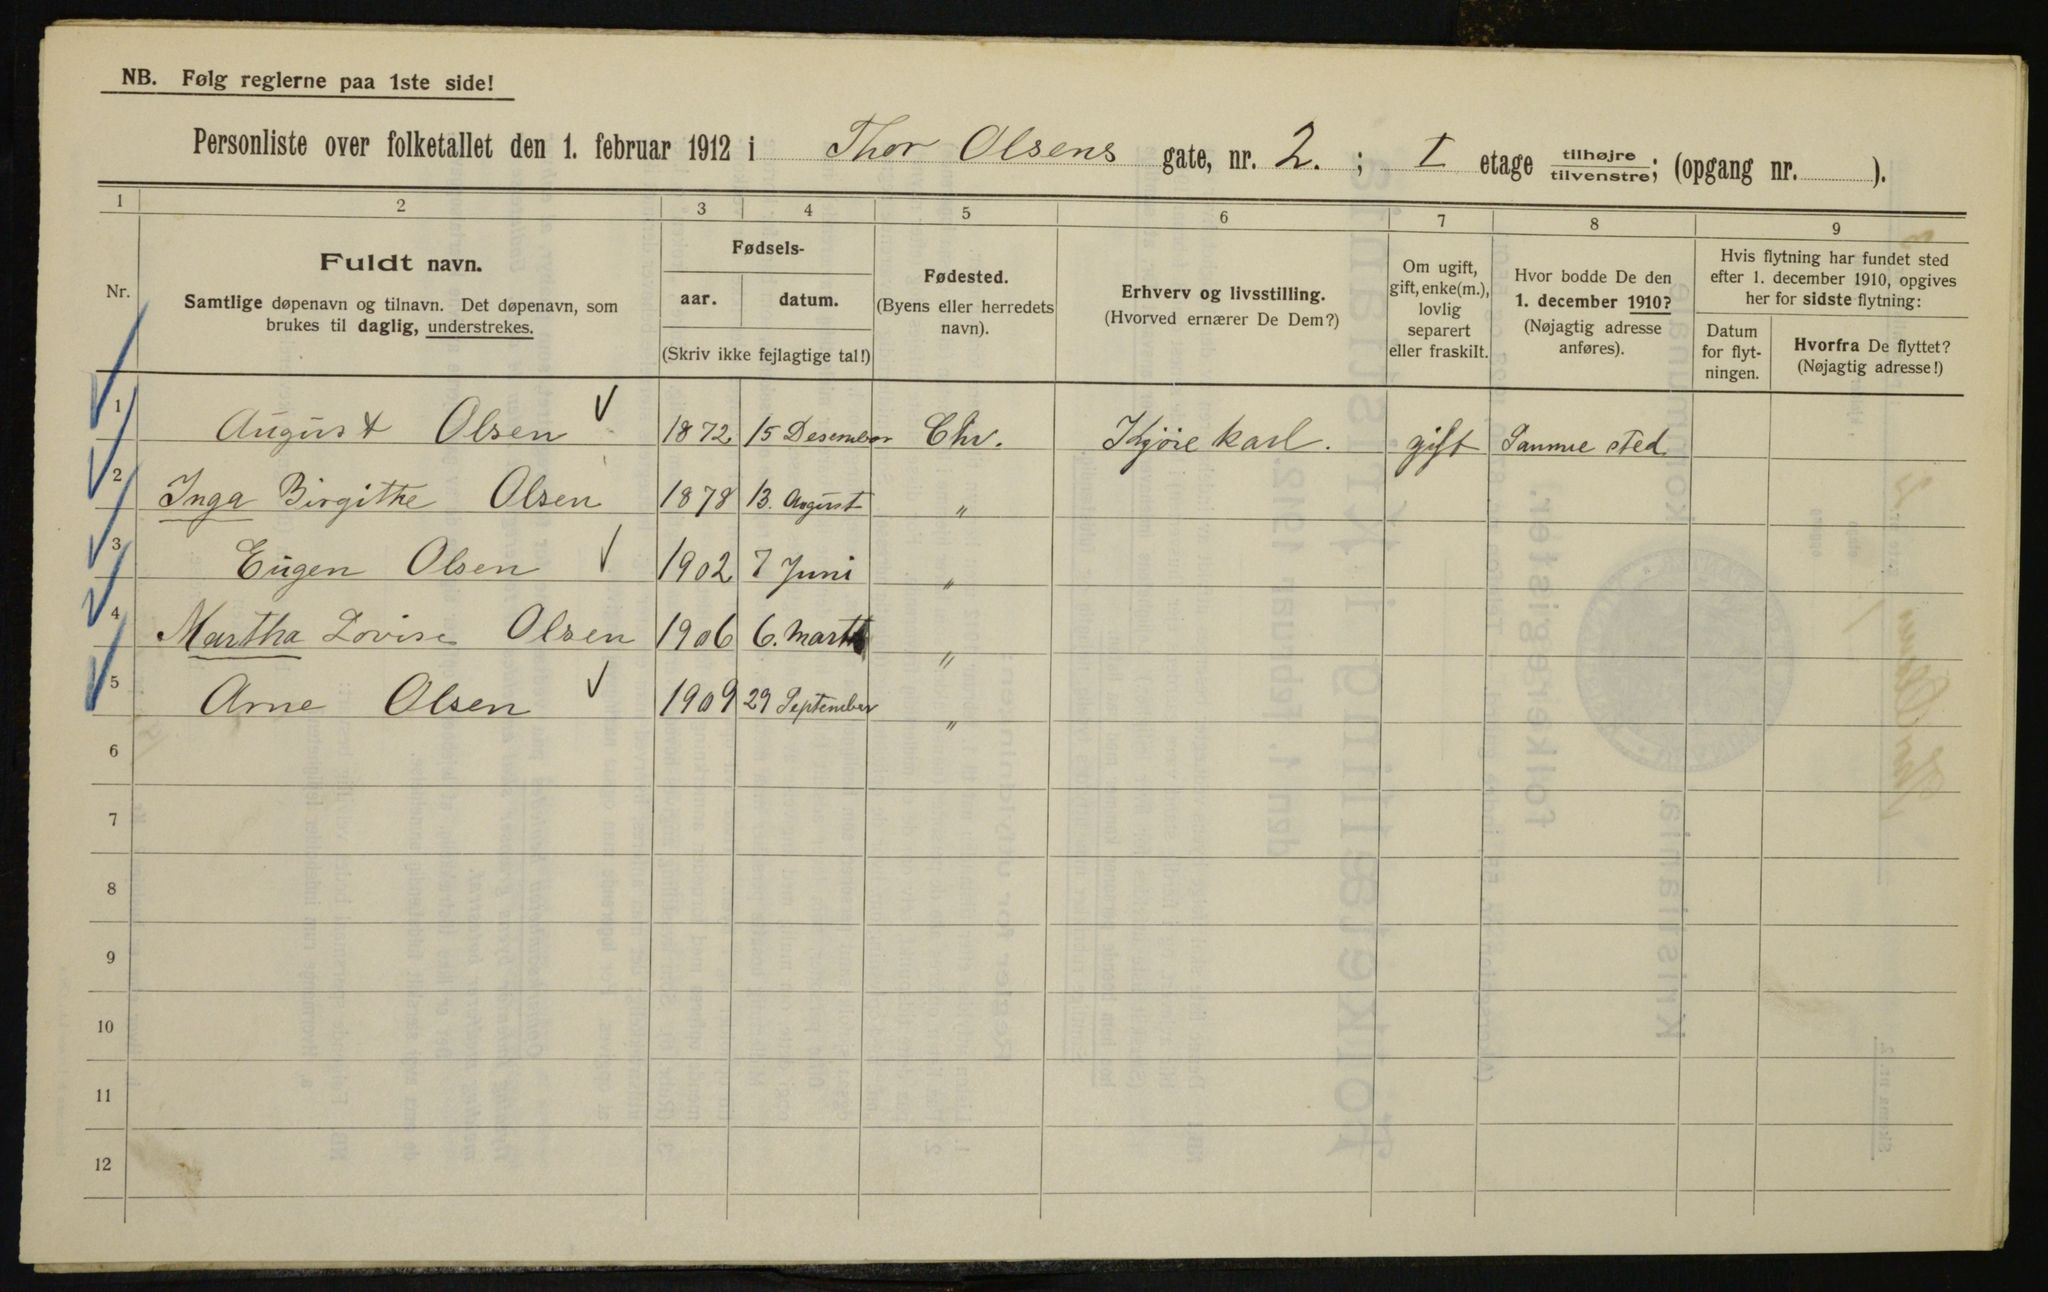 NB. Følg reglerne paa 1ste side!
Personliste over folketallet den 1. februar 1912 i Thor Olsens gate, nr. 2. ; I etage tilhøjre tilvenstre; (opgang nr. ).
1 2 3 4 5 6 7 8 9
Nr.
Fuldt navn.
Samtlige døpenavn og tilnavn. Det døpenavn, som
brukes til daglig, understrekes.
Fødsels-
aar. datum.
(Skriv ikke fejlagtige tal!)
Fødested.
(Byens eller herredets
navn).
Erhverv og livsstilling.
(Hvorved ernærer De Dem?)
Om ugift,
gift, enke(m.),
lovlig
separert
eller fraskilt.
Hvor bodde De den
1. december 1910?
(Nøjagtig adresse
anføres).
Hvis flytning har fundet sted
efter 1. december 1910, opgives
her for sidste flytning:
Datum
for flyt-
ningen.
Hvorfra De flyttet?
(Nøjagtig adresse!)
1 August Olsen 1872 15 Desember Chr. Kjørekarl. gift Samme sted
2 Inga Birgithe Olsen 1878 13. August "
3 Eugen Olsen 1902 7 Juni "
4 Martha Lovise Olsen 1906 6. Marts "
5 Arne Olsen 1909 29 September "
6
7
8
9
10
11
12